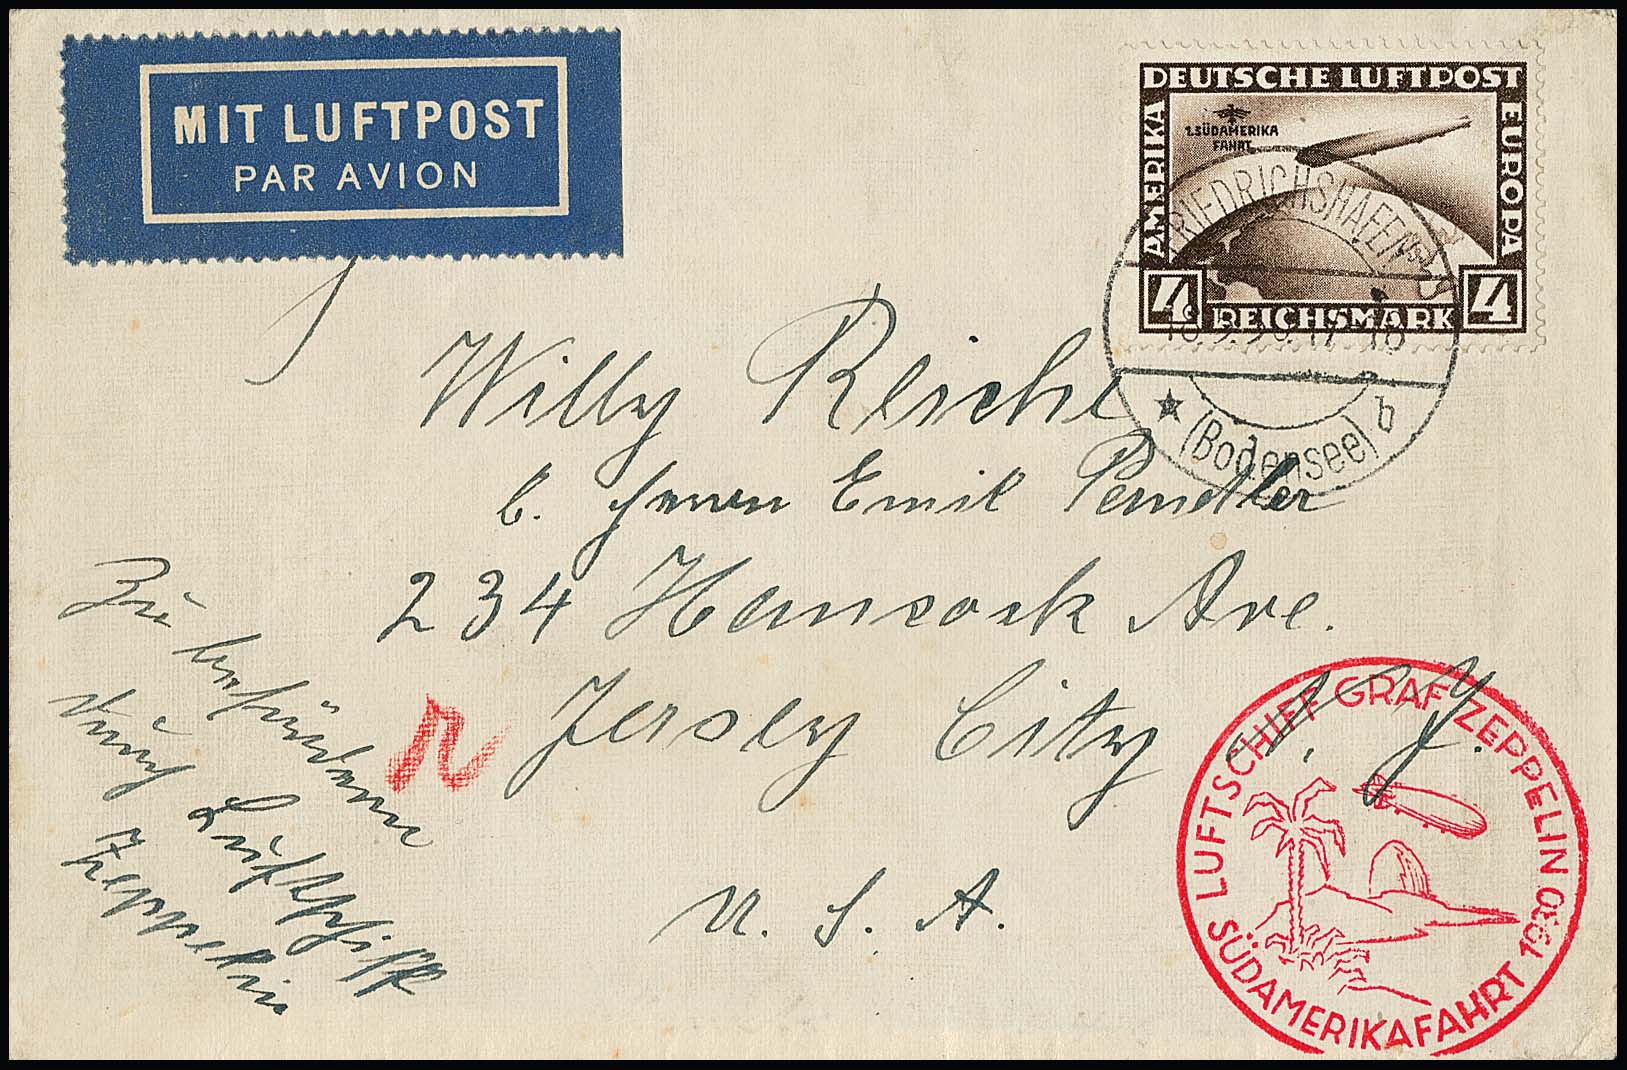 MIT LUFTPOST
PAR AVION
DEUTSCHE LUFTPOST
AMERIKA
EUROPA
1. SÜDAMERIKA
FAHRT
4
4
REICHSMARK
FRIEDRICHSHAFEN
(Bodensee) b
Willy Reiche
b. Herrn Emil Pendtler
234 Hancock Ave.
Jersey City N. Y.
U. S. A.
Zu befördern
durch
Luftschiff
Zeppelin
LUFTSCHIFF GRAF ZEPPELIN
SÜDAMERIKAFAHRT 1930